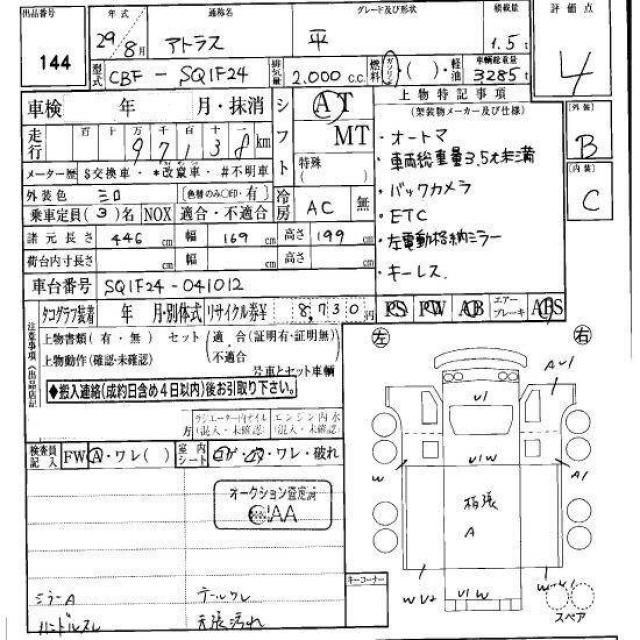 出品番号 144
年式 29/8月
通称名 アトラス
グレード及び形状 平
積載量 1.5t
評価点 4
型式 CBF-SQ1F24
排気量 2.000c.c.
燃料 ガソリン・( )・軽油
車輌総重量 3285t
車検 年 月・抹消
シフト AT
MT
特殊( )
走行 百 十 万 千 百 十 一
9 7 1 3 8 km
メーター歴 $交換車・*改竄車・#不明車
外装色 シロ [色替のみ○印・有]
乗車定員(3)名 NOX 適合・不適合
冷房 AC 無
諸元長さ 446cm 幅 169cm 高さ 199cm
荷台内寸長さ cm 幅 cm 高さ cm
車台番号 SQ1F24-041012
上物特記事項
(架装物メーカー及び仕様)
・オートマ
・車両総重量3.5t未満
・バックカメラ
・ETC
・左電動格納ミラー
・キーレス
外装 B
内装 C
タコグラフ装着 年 月・別体式 リサイクル券¥ 8,730円
PS PW AB エアーブレーキ ABS
注意事項(出品店記
上物書類(有・無) セット(適合(証明有・証明無)
上物動作(確認・未確認) 不適合
号車とセット車輌
◆搬入連絡(成約日含め4日以内)後お引取り下さい。
ラジエーター内オイル エンジン内水
方 (混入・未確認) (混入・未確認)
検査員記入 FW A・ワレ( ) 室内シート コゲ・破れ
オークション査定済
AA
ミラーA
テールワレ
ハンドルスレ
天張汚れ
キーコーナー
左
右
A U1
U1
U1W
W
A1
板張
A
W U2
W
U1W
スペア